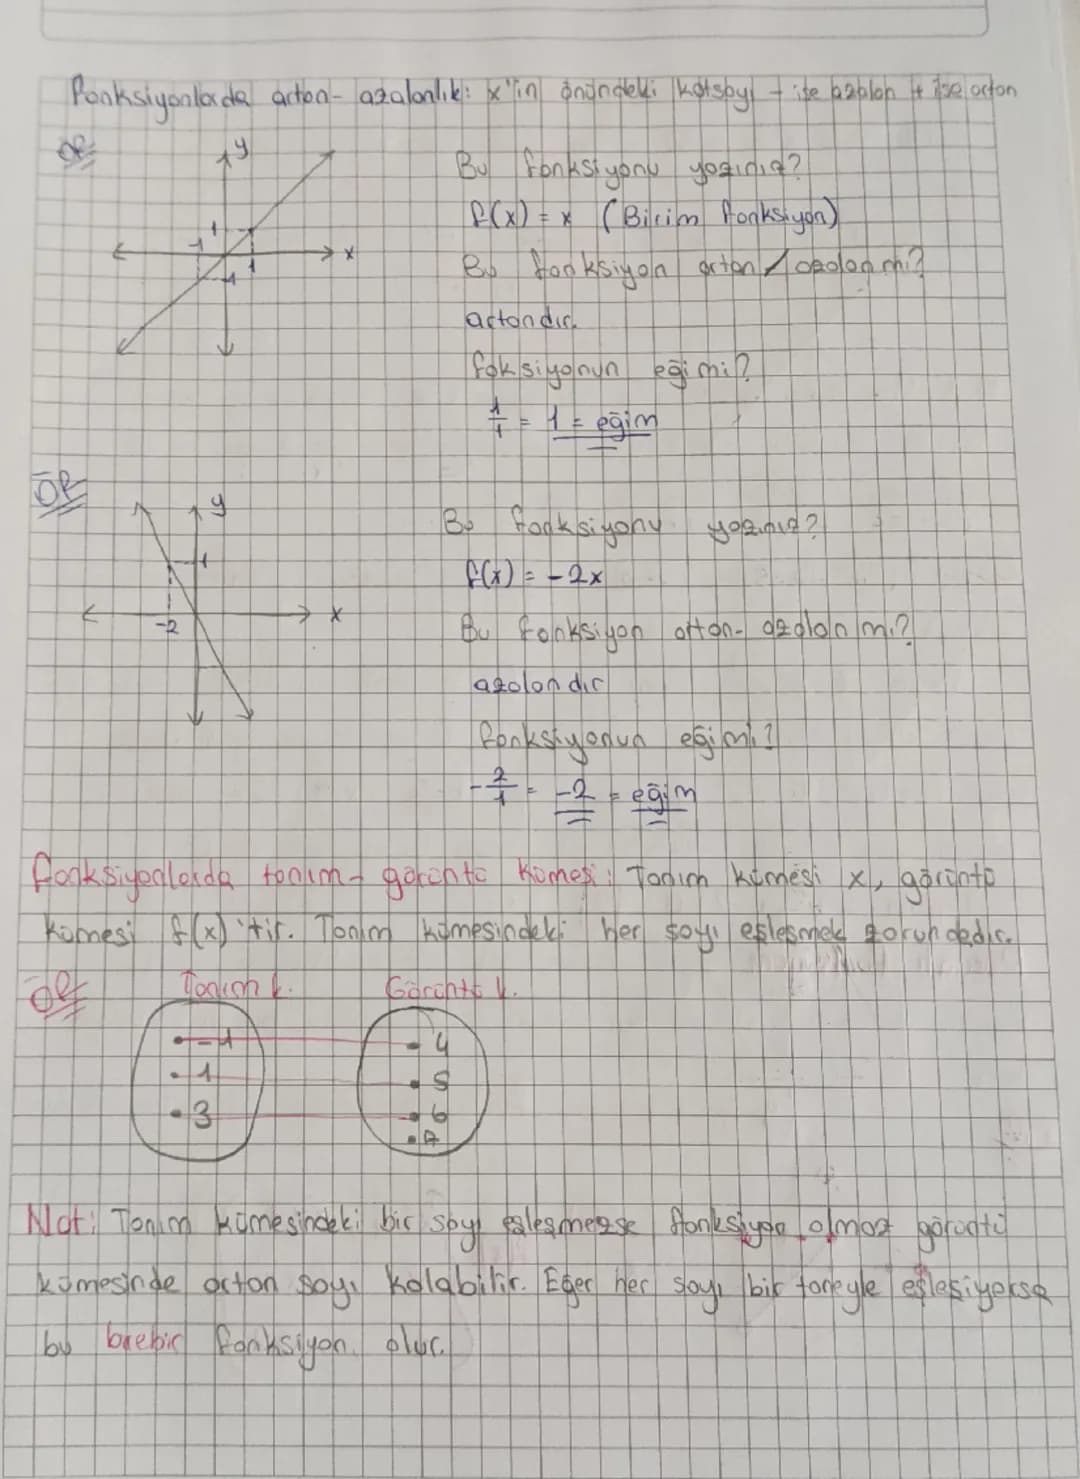 Fonksiyonlarda artan-azalanlık: x'in önündeki katsayı - ise azalan + ise artan
ÖR
y
1
-1
x
-1
1
Bu fonksiyonu yazınız?
f(x) = x (Birim fonksiyon)
Bu fonksiyon artan/azalan mı?
artandır.
foksiyonun eğimi?
1/1 = 1 = eğim
ÖR
y
1
-2
x
Bu fonksiyonu yazınız?
f(x) = -2x
Bu fonksiyon artan-azalan mı?
azalandır
fonksiyonun eğimi?
-2/1 = -2 = eğim
fonksiyonlarda tanım-görüntü kümesi: Tanım kümesi x, görüntü
kümesi f(x)'tir. Tanım kümesindeki her sayı eşleşmek zorundadır.
ÖR
Tanım k. Görüntü k.
-1 4
1 5
3 6
7
Not: Tanım kümesindeki bir sayı eşleşmezse fonksiyon olmaz görüntü
kümesinde artan sayı kalabilir. Eğer her sayı bir taneyle eşleşiyorsa
bu birebir fonksiyon olur.